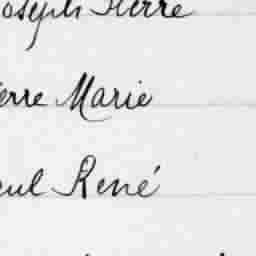 Joseph Pierre
Pierre Marie
Paul René